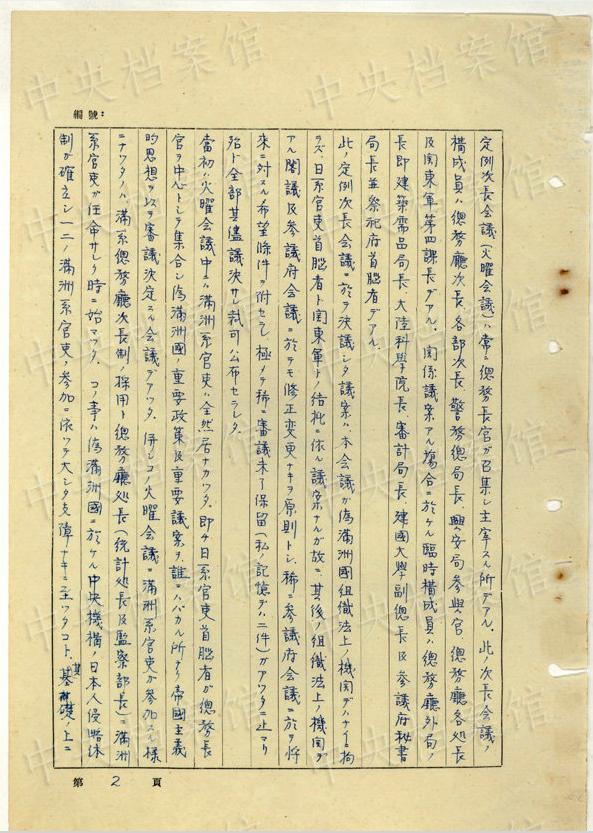 編號:
定例次長会議(火曜会議)ハ常ニ総務長官ガ召集シ主宰スル所デアル。此ノ次長会議ノ
構成員ハ総務廳次長、各部次長、警務総局長、興安局参與官、総務廳各処長
及関東軍第四課長デアル。関係議案アル場合ニ於ケル臨時構成員ハ総務廳外局ノ
長即建築需品局長、大陸科学院長、審計局長、建國大學副総長及参議府秘書
局長並祭祀府首脳者デアル。
此ノ定例次長会議ニ於テ決議シタ議案ハ、本会議ガ偽満洲國組織法上ノ機関デハナイニ拘
ラズ、日系官吏首脳者ト関東軍トノ結托ニ依ル議案ナルガ故ニ、其後ノ組織法上ノ機関デ
アル閣議及参議府会議ニ於テモ修正変更ナキヲ原則トシ、稀ニ参議府会議ニ於テ将
来ニ対スル希望條件ヲ附セラレ、極メテ稀ニ審議未了保留(私ノ記憶デハ二件)ガアツタニ止マリ
殆ト全部其儘議決サレ裁可公布セラレタ。
當初ハ火曜会議中ニハ満洲系官吏ハ全然居ナカツタ。即チ日系官吏首脳者ガ総務長
官ヲ中心トシテ集合シ偽満洲國ノ重要政策及重要議案ヲ誰ニハバカル所ナク帝國主義
的思想ヲ以テ審議決定スル会議デアツタ。併シコノ火曜会議ニ満洲系官吏ガ参加スル様
ニナツタノハ満系総務廳次長制ノ採用ト総務廳処長(統計処長及監察部長)ニ満洲
系官吏ガ任命サレタ時ニ始マツタ。コノ事ハ偽満洲國ニ於ケル中央機構ノ日本人侵略体
制ガ確立シ一二ノ満洲系官吏ノ参加ニ依ツテ大シタ支障ナキニ至ツタコト、其基礎ノ上ニ
第 2 頁
中央档案馆